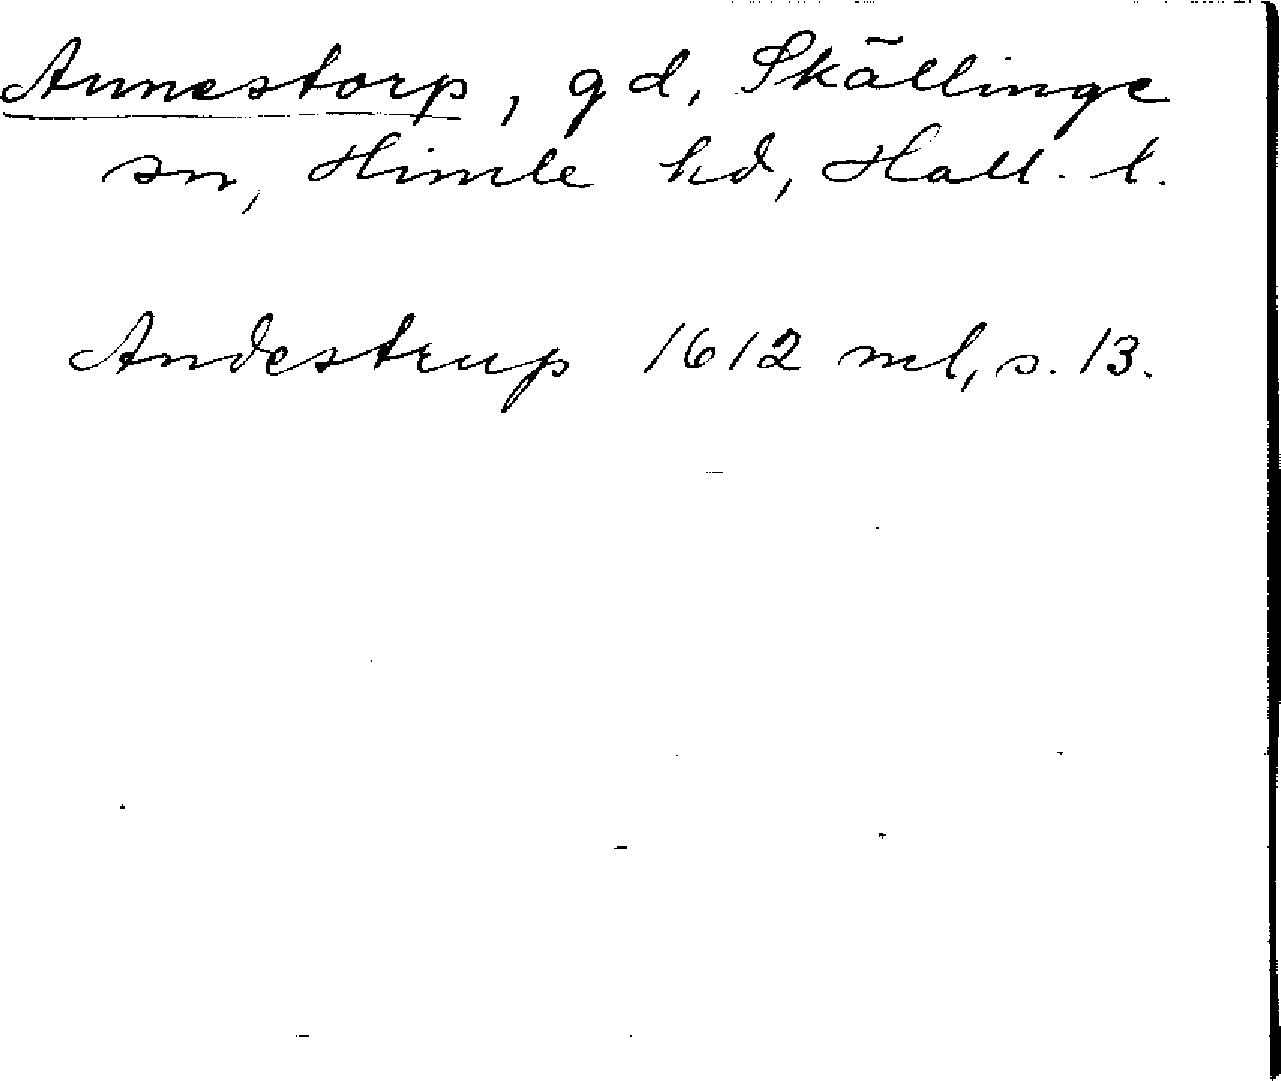 Annestorp, gd, Skällinge
sn, Himle hd, Hall. l.
Andestrup 1612 ml, s. 13.